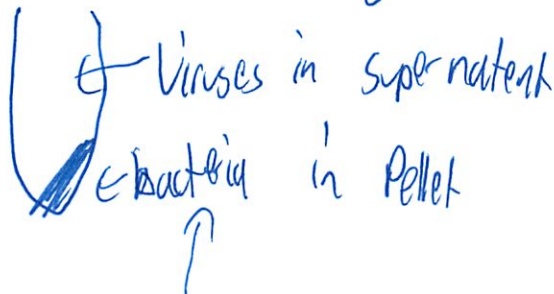 Viruses in supernatent
bacteria in Pellet